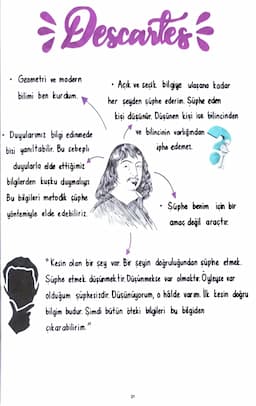 Descartes
• Geometri ve modern
bilimi ben kurdum.
• Açık ve seçik bilgiye ulaşana kadar
her şeyden şüphe ederim. Şüphe eden
kişi düşünür. Düşünen kişi ise bilincinden
ve bilincin varlığından
şüphe edemez.
• Duyularımız bilgi edinmede
bizi yanıltabilir. Bu sebepli
duyularla elde ettiğimiz
bilgilerden kuşku duymalıyız
Bu bilgileri metodik şüphe
yöntemiyle elde edebiliriz.
• Şüphe benim için bir
amaç değil araçtır.
"Kesin olan bir şey var. Bir şeyin doğruluğundan şüphe etmek.
Şüphe etmek düşünmektir. Düşünmekse var olmaktır. Öyleyse var
olduğum şüphesizdir. Düşünüyorum, o hâlde varım. İlk kesin doğru
bilgim budur. Şimdi bütün öteki bilgileri bu bilgiden
çıkarabilirim."